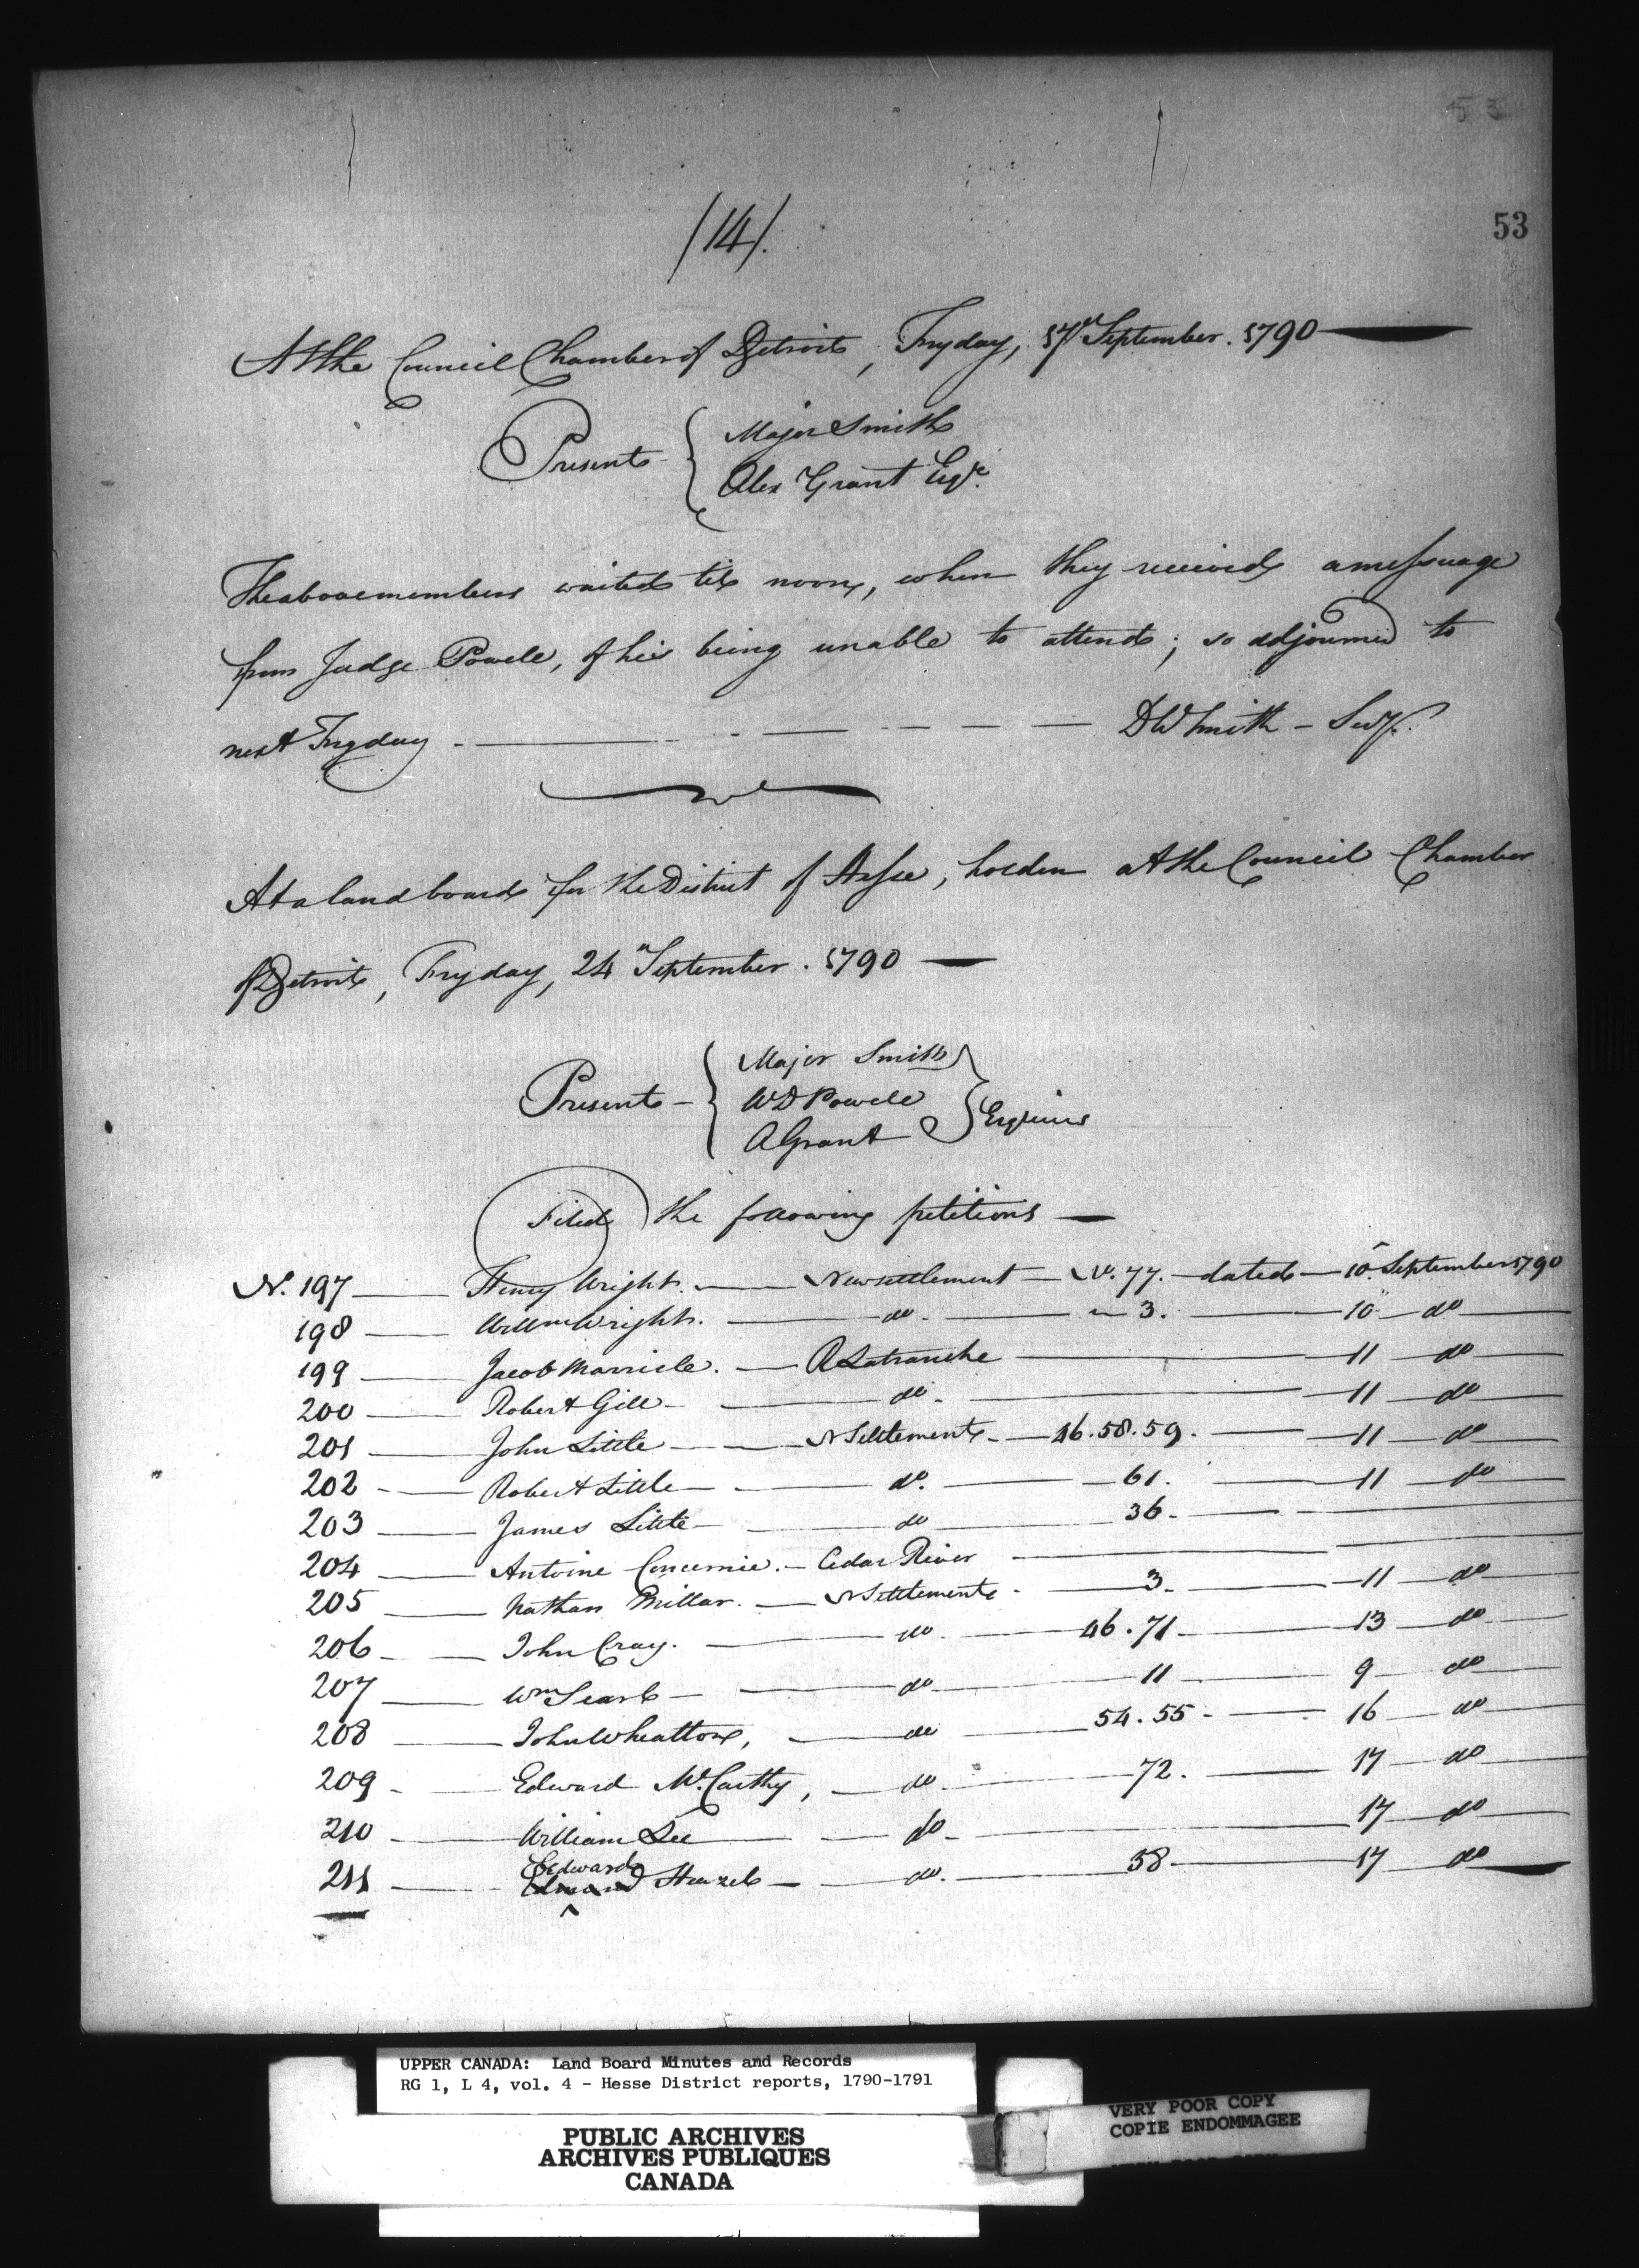 53
/14/.
53
At the Council Chamber of Detroit, Fryday, 17th September. 1790
Present { Major Smith
Alex Grant Esqr.
The above members waited til noon, when they received a messuage
from Judge Powell, of his being unable to attend; so adjourned to
next Fryday - DW Smith - Secy.
At a land board for the District of Hesse, holden at the Council Chamber
of Detroit, Fryday, 24th September. 1790
Present - { Major Smith
WD Powell } Esquires
A Grant
Filed the following petitions —
No. 197 Henry Wright. Newsettlement No. 77. dated 10th September 1790
198 Willm Wright. do. 3. 10 do
199 Jacob Marricle. R Latranche 11 do
200 Robert Gill do. 11 do
201 John Little N Settlement 46.58.59. 11 do
202 Robert Little do. 61. 11 do
203 James Little do 36.
204 Antoine Cedar River
205 Nathan Millar. N Settlement 3. 11 do
206 John Cray. do 46.71 13 do
207 Wm Searl do 11 9 do
208 John Wheatton, do 54.55 16 do
209 Edward McCarthy, do 72. 17 do
210 William Lee do 17 do
211 Edward Edmond do. 58 17 do
UPPER CANADA: Land Board Minutes and Records
RG 1, L 4, vol. 4 - Hesse District reports, 1790-1791
PUBLIC ARCHIVES
ARCHIVES PUBLIQUES
CANADA
VERY POOR COPY
COPIE ENDOMMAGEE